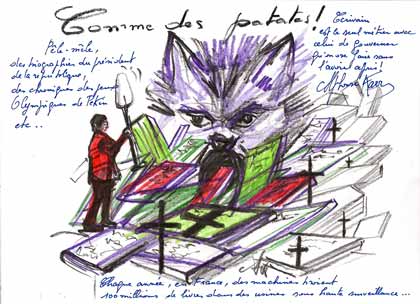 Comme des patates !
Pêle-mêle,
des biographies du président
de la république,
des chroniques des jeux
Olympiques de Pékin
etc...
Ecrivain
est le seul métier avec
celui de gouverner
qu'on ose faire sans
l'avoir appris !
Alphonse Karr
Chaque année, en France, des machines broient
100 millions de livres dans des usines sous haute surveillance...